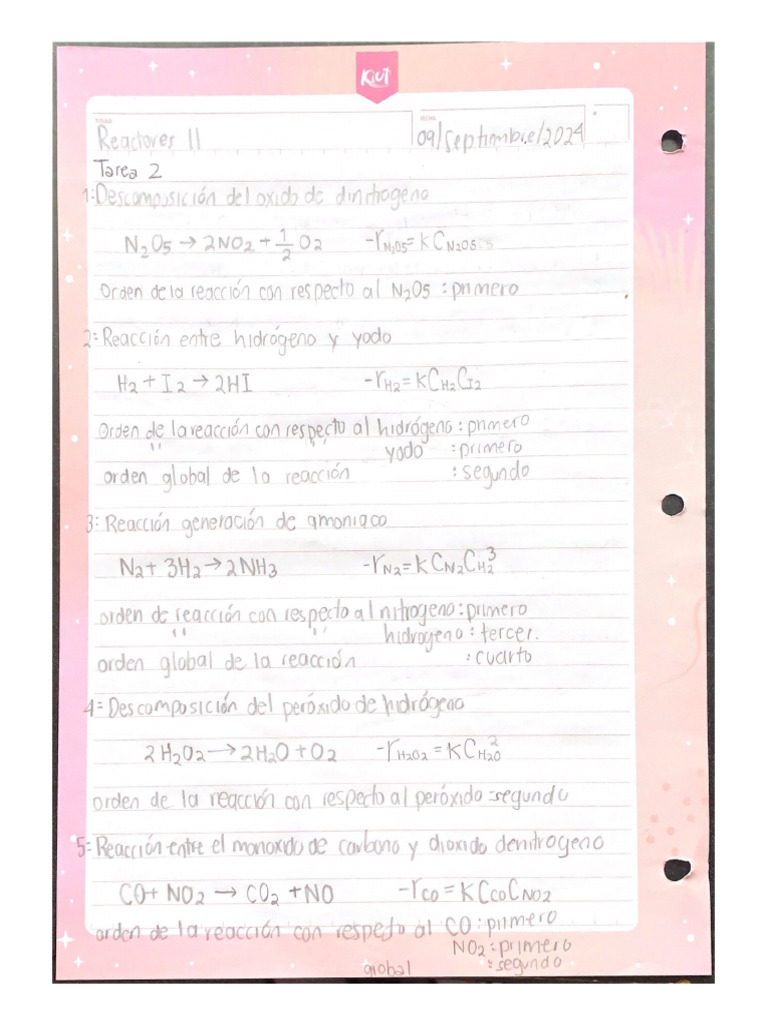 Kiut
TITULO
FECHA
Reactores II 09/septiembre/2024
Tarea 2
1: Descomposición del oxido de dinitrogeno
N₂O₅ → 2NO₂ + 1/2 O₂ -rN₂O₅ = kCN₂O₅
Orden de la reacción con respecto al N₂O₅ : primero
2: Reacción entre hidrógeno y yodo
H₂ + I₂ → 2HI -rH₂ = kCH₂CI₂
Orden de la reacción con respecto al hidrógeno : primero
" " yodo : primero
orden global de la reacción : segundo
3: Reacción generación de amoniaco
N₂ + 3H₂ → 2NH₃ -rN₂ = kCN₂CH₂³
orden de reacción con respecto al nitrogeno : primero
" " hidrogeno : tercer.
orden global de la reacción : cuarto
4= Descomposición del peróxido de hidrógeno
2H₂O₂ → 2H₂O + O₂ -rH₂O₂ = KCH₂O²
orden de la reacción con respecto al peróxido = segundo
5= Reacción entre el monoxido de carbono y dioxido de nitrogeno
CO + NO₂ → CO₂ + NO -rCO = KCCOCNO₂
orden de la reacción con respecto al CO : primero
NO₂ : primero
global : segundo